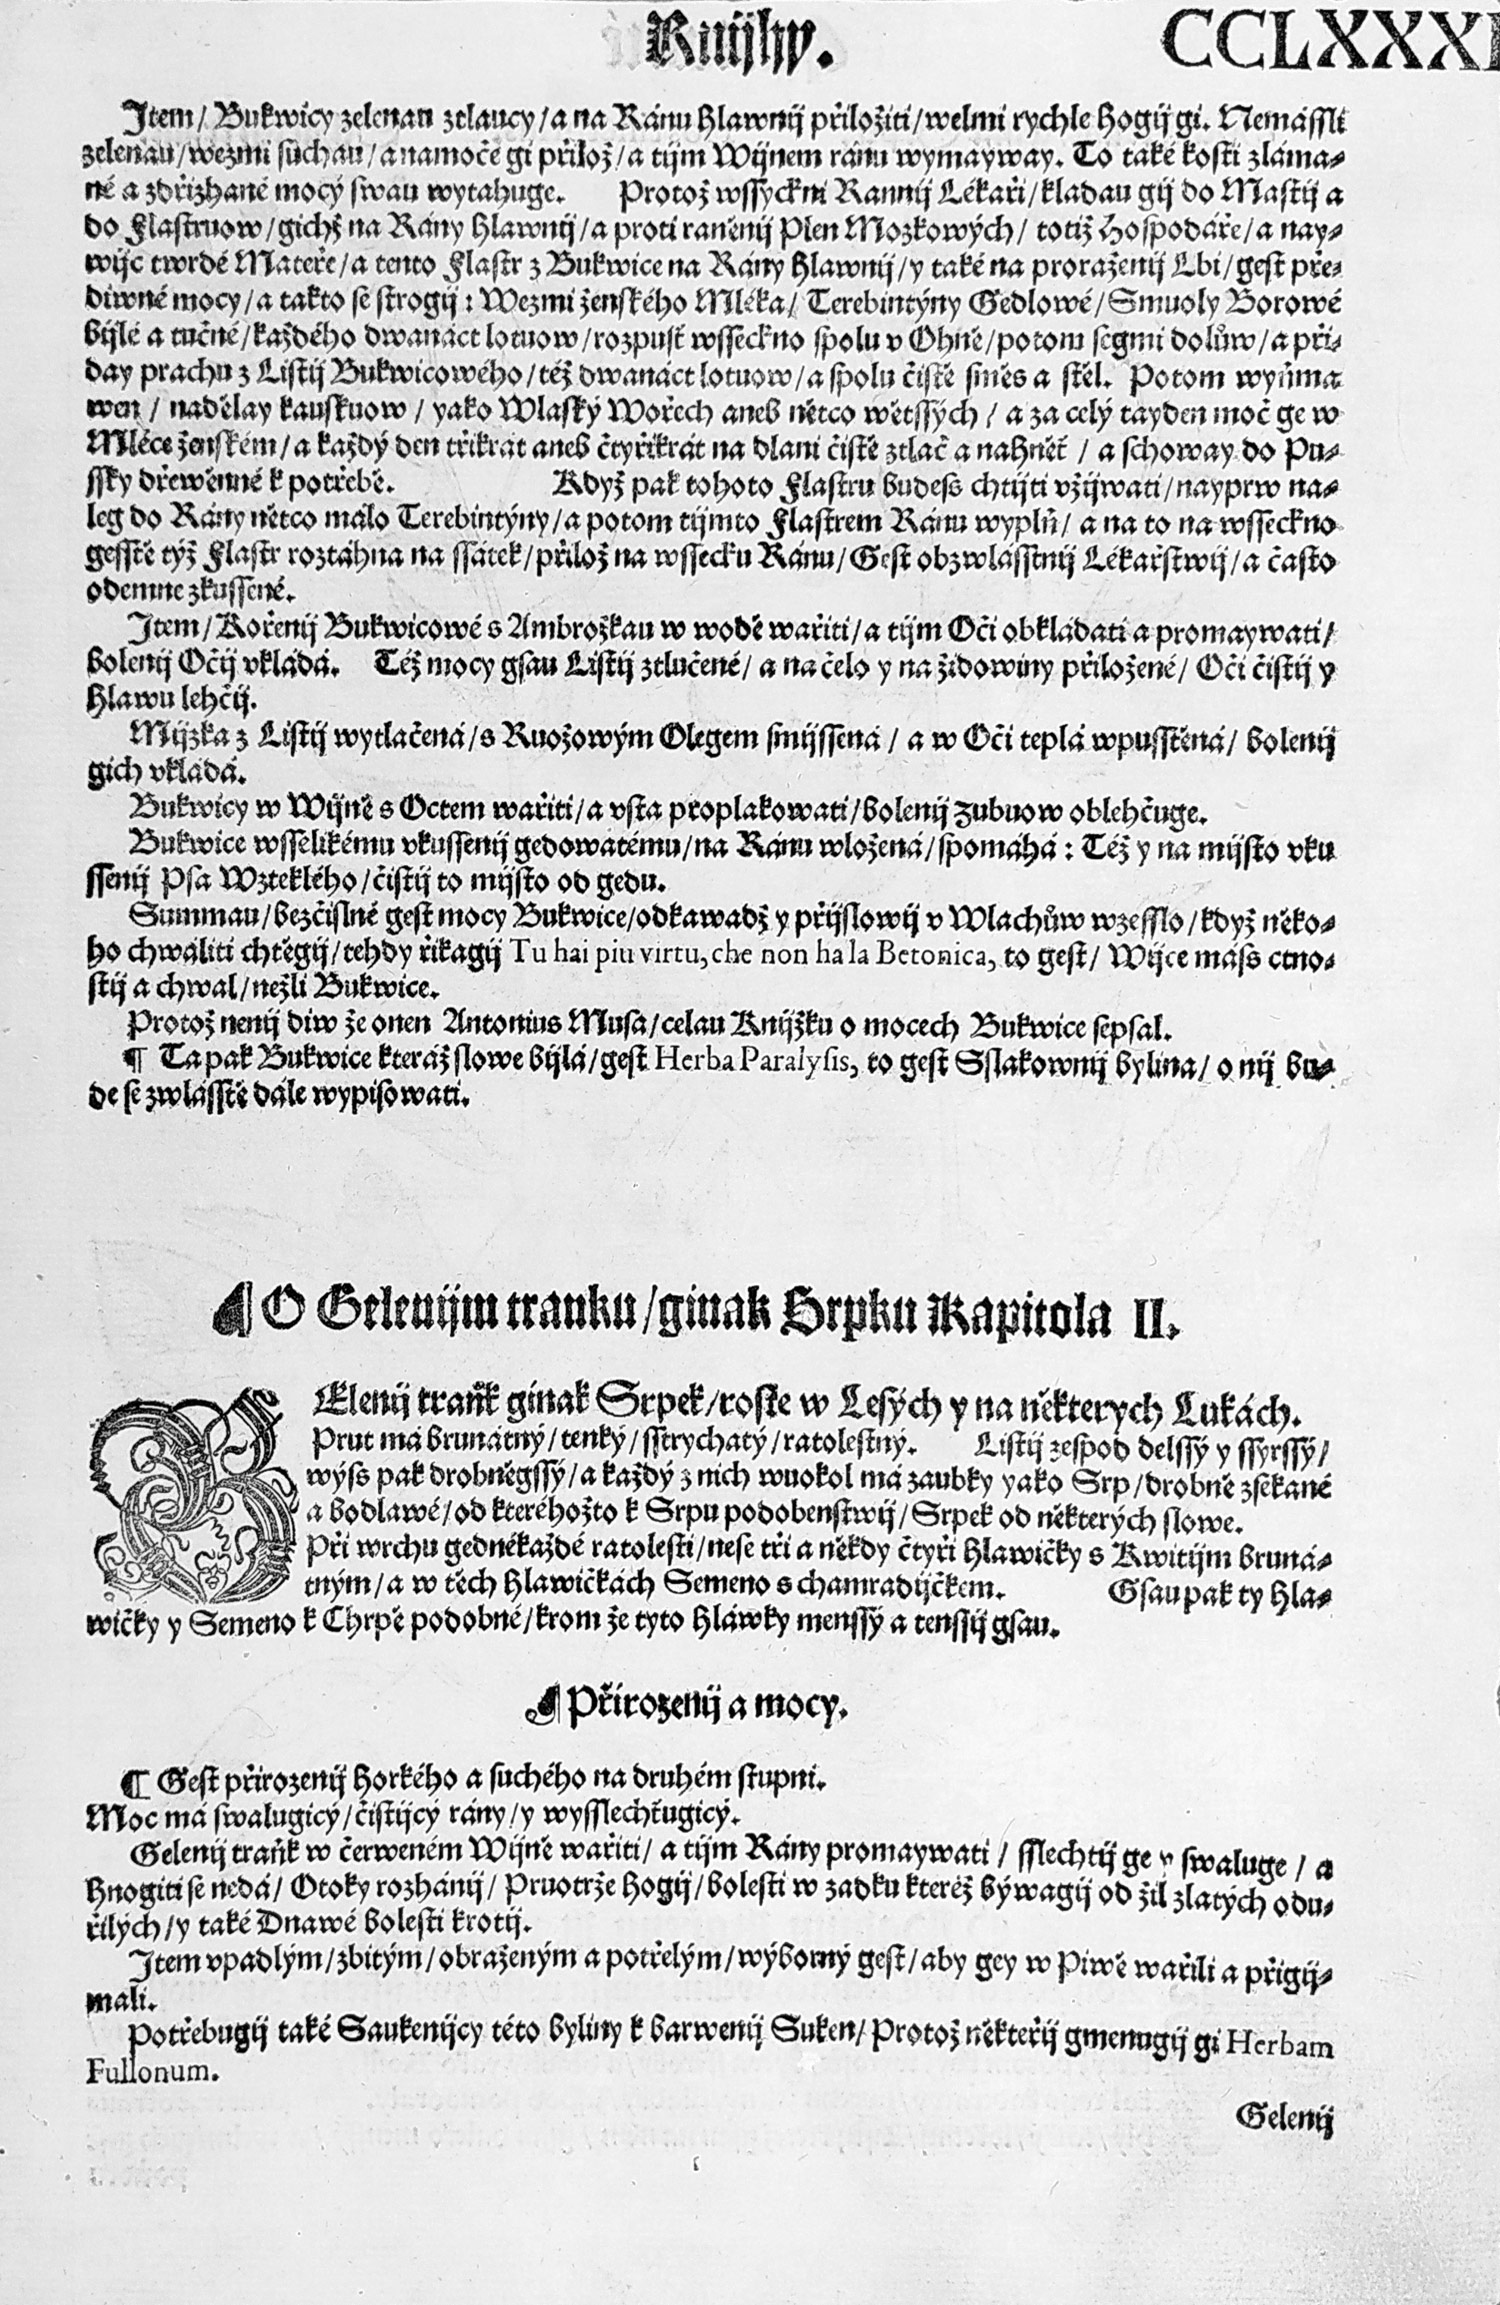 Knijhy. CCLXXXI
Item/ Bukwicy zelenau ztlaucy/a na Ránu Hlawnij přiložiti/welmi rychle hogij gi. Nemássli
zelenau/wezmi suchau/a namočě gi přilož/a tijm Wijnem ránu wymayway. To také kosti zláma-
né a zdřizhané mocý swau wytahuge. Protož wssyckni Rannij Lékaři/kladau gij do Mastij a
do Flastruow/gichž na Rány Hlawnij/a proti raněnij Plen Mozkowých/ totiž Hospodáře/a nay-
wijc twrdé Mateře/a tento Flastr z Bukwice na Rány Hlawnij/y také na proraženij Lbi/gest pře-
diwné mocy/a takto se strogij: Wezmi ženského Mléka/ Terebintýny Gedlowé/Smuoly Borowé
bijlé a tučné/každého dwanáct lotuow/rozpusť wssecko spolu v Ohně/potom segmi dolůw/a při-
day prachu z Listij Bukwicowého/též dwanáct lotuow/a spolu čistě směs a stěl. Potom wyňma
wen/ nadělay kauskuow/ yako Wlaský Wořech aneb nětco wětssých/ a za celý tayden moč ge w
Mléce ženském/a každý den třikrát aneb čtyřikrát na dlani čistě ztlač a nahněť/ a schoway do Pu-
ssky dřewěnné k potřebě. Když pak tohoto Flastru budess chtijti vžijwati/nayprw na-
leg do Rány nětco málo Terebintýny/a potom tijmto Flastrem Ránu wyplň/ a na to na wsseckno
gesstě týž Flastr roztáhna na ssátek/přilož na wssecku Ránu/Gest obzwlásstnij Lékařstwij/a často
odemne zkussené.
Item/Kořenij Bukwicowé s Ambrožkau w wodě wařiti/a tijm Oči obkládati a promaywati/
bolenij Očij vkládá. Též mocy gsau Listij ztlučené/ a na čelo y na židowiny přiložené/ Oči čistij y
Hlawu lehčij.
Mijzka z Listij wytlačená/s Ruožowým Olegem smijssená/ a w Oči teplá wpusstěná/ bolenij
gich vkládá.
Bukwicy w Wijně s Octem wařiti/a vsta proplakowati/bolenij Zubuow oblehčuge.
Bukwice wsselikému vkussenij gedowatému/na Ránu wložená/spomáhá: Též y na mijsto vku
ssenij Psa Wzteklého/čistij to mijsto od gedu.
Summau/bezčislné gest mocy Bukwice/odkawadž y přijslowij v Wlachůw wzesslo/když něko-
ho chwáliti chtěgij/tehdy řikagij Tu hai piu virtu, che non ha la Betonica, to gest/ Wijce máss ctno-
stij a chwal/nežli Bukwice.
Protož nenij diw že onen Antonius Musa/celau Knijžku o mocech Bukwice sepsal.
¶ Ta pak Bukwice kteráž slowe bijlá/gest Herba Paralysis, to gest Sslakownij bylina/ o nij bu-
de se zwlásstě dále wypisowati.
¶ O Gelenijm tranku/ginak Srpku Kapitola II.
GElenij traňk ginak Srpek/roste w Lesých y na některych Lukách.
Prut má brunátný/tenký/sstrychatý/ratolestný. Listij zespod delssý y ssyrssý/
wýss pak drobněgssý/a každý z nich wuokol má zaubky yako Srp/drobně zsekané
a bodlawé/od kteréhožto k Srpu podobenstwij/Srpek od některých slowe.
Při wrchu gednékaždé ratolesti/nese tři a někdy čtyři Hlawičky s Kwitijm bruná-
tným/a w těch Hlawičkách Semeno s chamradijčkem. Gsau pak ty Hla-
wičky y Semeno k Chrpě podobné/krom že tyto Hláwky menssý a tenssij gsau.
¶ Přirozenij a mocy.
¶ Gest přirozenij Horkého a suchého na druhém stupni.
Moc má swalugicý/čistijcý rány/y wysslechťugicý.
Gelenij traňk w čerweném Wijně wařiti/ a tijm Rány promaywati/ sslechtij ge y swaluge/ a
Hnogiti se nedá/ Otoky rozhánij/ Pruotrže Hogij/bolesti w zadku kteréž býwagij od žil zlatých odu-
řilých/y také Dnawé bolesti krotij.
Item vpadlým/zbitým/obraženým a potřelým/wýborný gest/aby gey w Piwě wařili a přigij-
mali.
Potřebugij také Saukenijcy této byliny k barwenij Suken/Protož někteřij gmenugij gi Herbam
Fullonum.
Gelenij